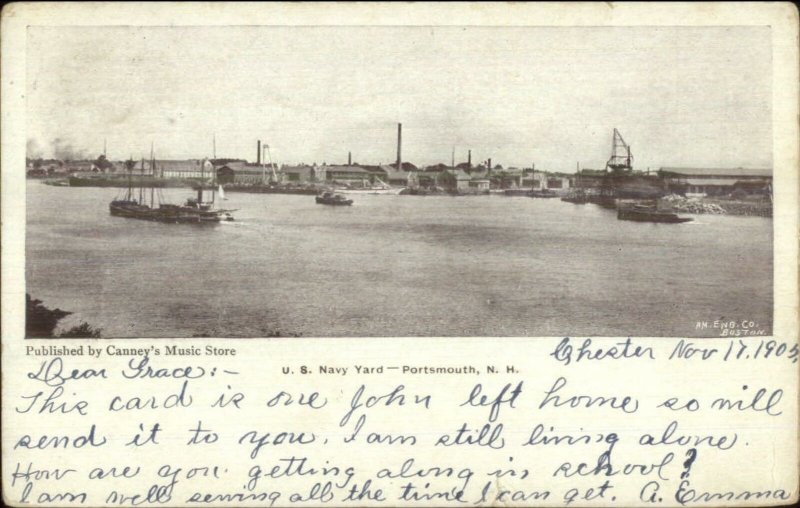 AM. ENG. CO.
BOSTON.
Published by Canney's Music Store
U. S. Navy Yard—Portsmouth, N. H.
Chester Nov 17, 1905,
Dear Grace:-
This card is one John left home so will
send it to you. I am still living alone.
How are you getting along in school?
I am well sewing all the time I can get. A. Emma